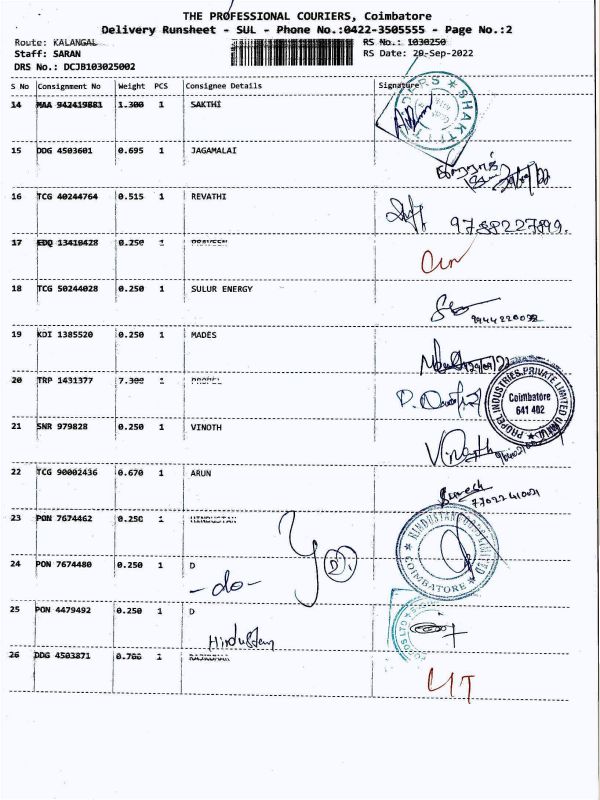 THE PROFESSIONAL COURIERS, Coimbatore
Delivery Runsheet - SUL - Phone No.:0422-3505555 - Page No.:2
Route: KALANGAL
RS No.: 1030250
Staff: SARAN
RS Date: 29-Sep-2022
DRS No.: DCJB103025002
S No Consignment No Weight PCS Consignee Details Signature
14 MAA 942419881 1.300 1 SAKTHI
15 DDG 4503601 0.695 1 JAGAMALAI
16 TCG 40244764 0.515 1 REVATHI
9788227899.
17 EDQ 13410428 0.250 1 PRAVEEN
18 TCG 50244028 0.250 1 SULUR ENERGY
19 KDI 1385520 0.250 1 MADES
20 TRP 1431377 7.300 1 PROPEL
PROPEL INDUSTRIES PRIVATE LIMITED
Coimbatore
641 402
21 SNR 979828 0.250 1 VINOTH
Vinoth
22 TCG 90002436 0.670 1 ARUN
Suresh
23 PON 7674462 0.250 1 HINDUSTAN
24 PON 7674480 0.250 1 D
-do-
COIMBATORE
25 PON 4479492 0.250 1 D
Hindustan
26 DDG 4503871 0.700 1